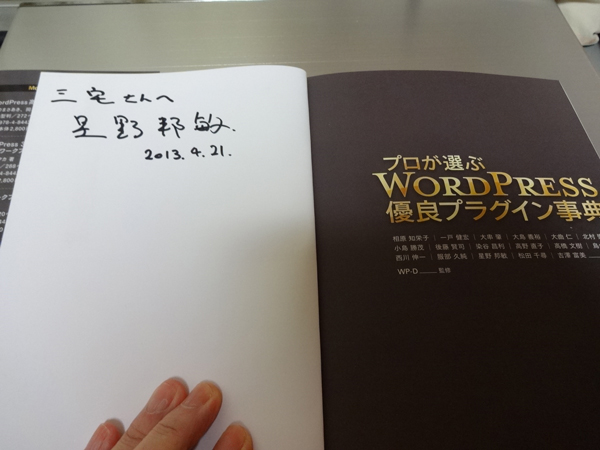 三宅さんへ
星野邦敏
2013.4.21.
プロが選ぶ
WORDPRESS
優良プラグイン事典
相原 知栄子 | 一戸 健宏 | 大串 肇 | 大島 義裕 | 大曲 仁 | 北村
小島 勝茂 | 後藤 賢司 | 染谷 昌利 | 高野 直子 | 高橋 文樹 | 鳥
西川 伸一 | 服部 久純 | 星野 邦敏 | 松田 千尋 | 吉澤 富美
WP-D 監修